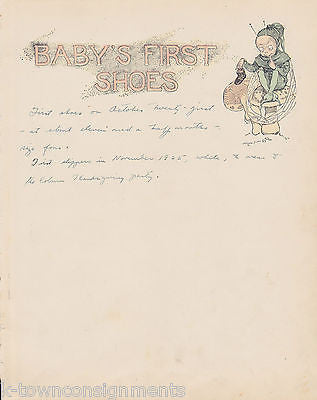 BABY'S FIRST
SHOES
First shoes on October twenty-first
- at about eleven and a half months -
size four.
First slippers in November 1925, white, to wear to
the Thanksgiving party.
k-townconsignments